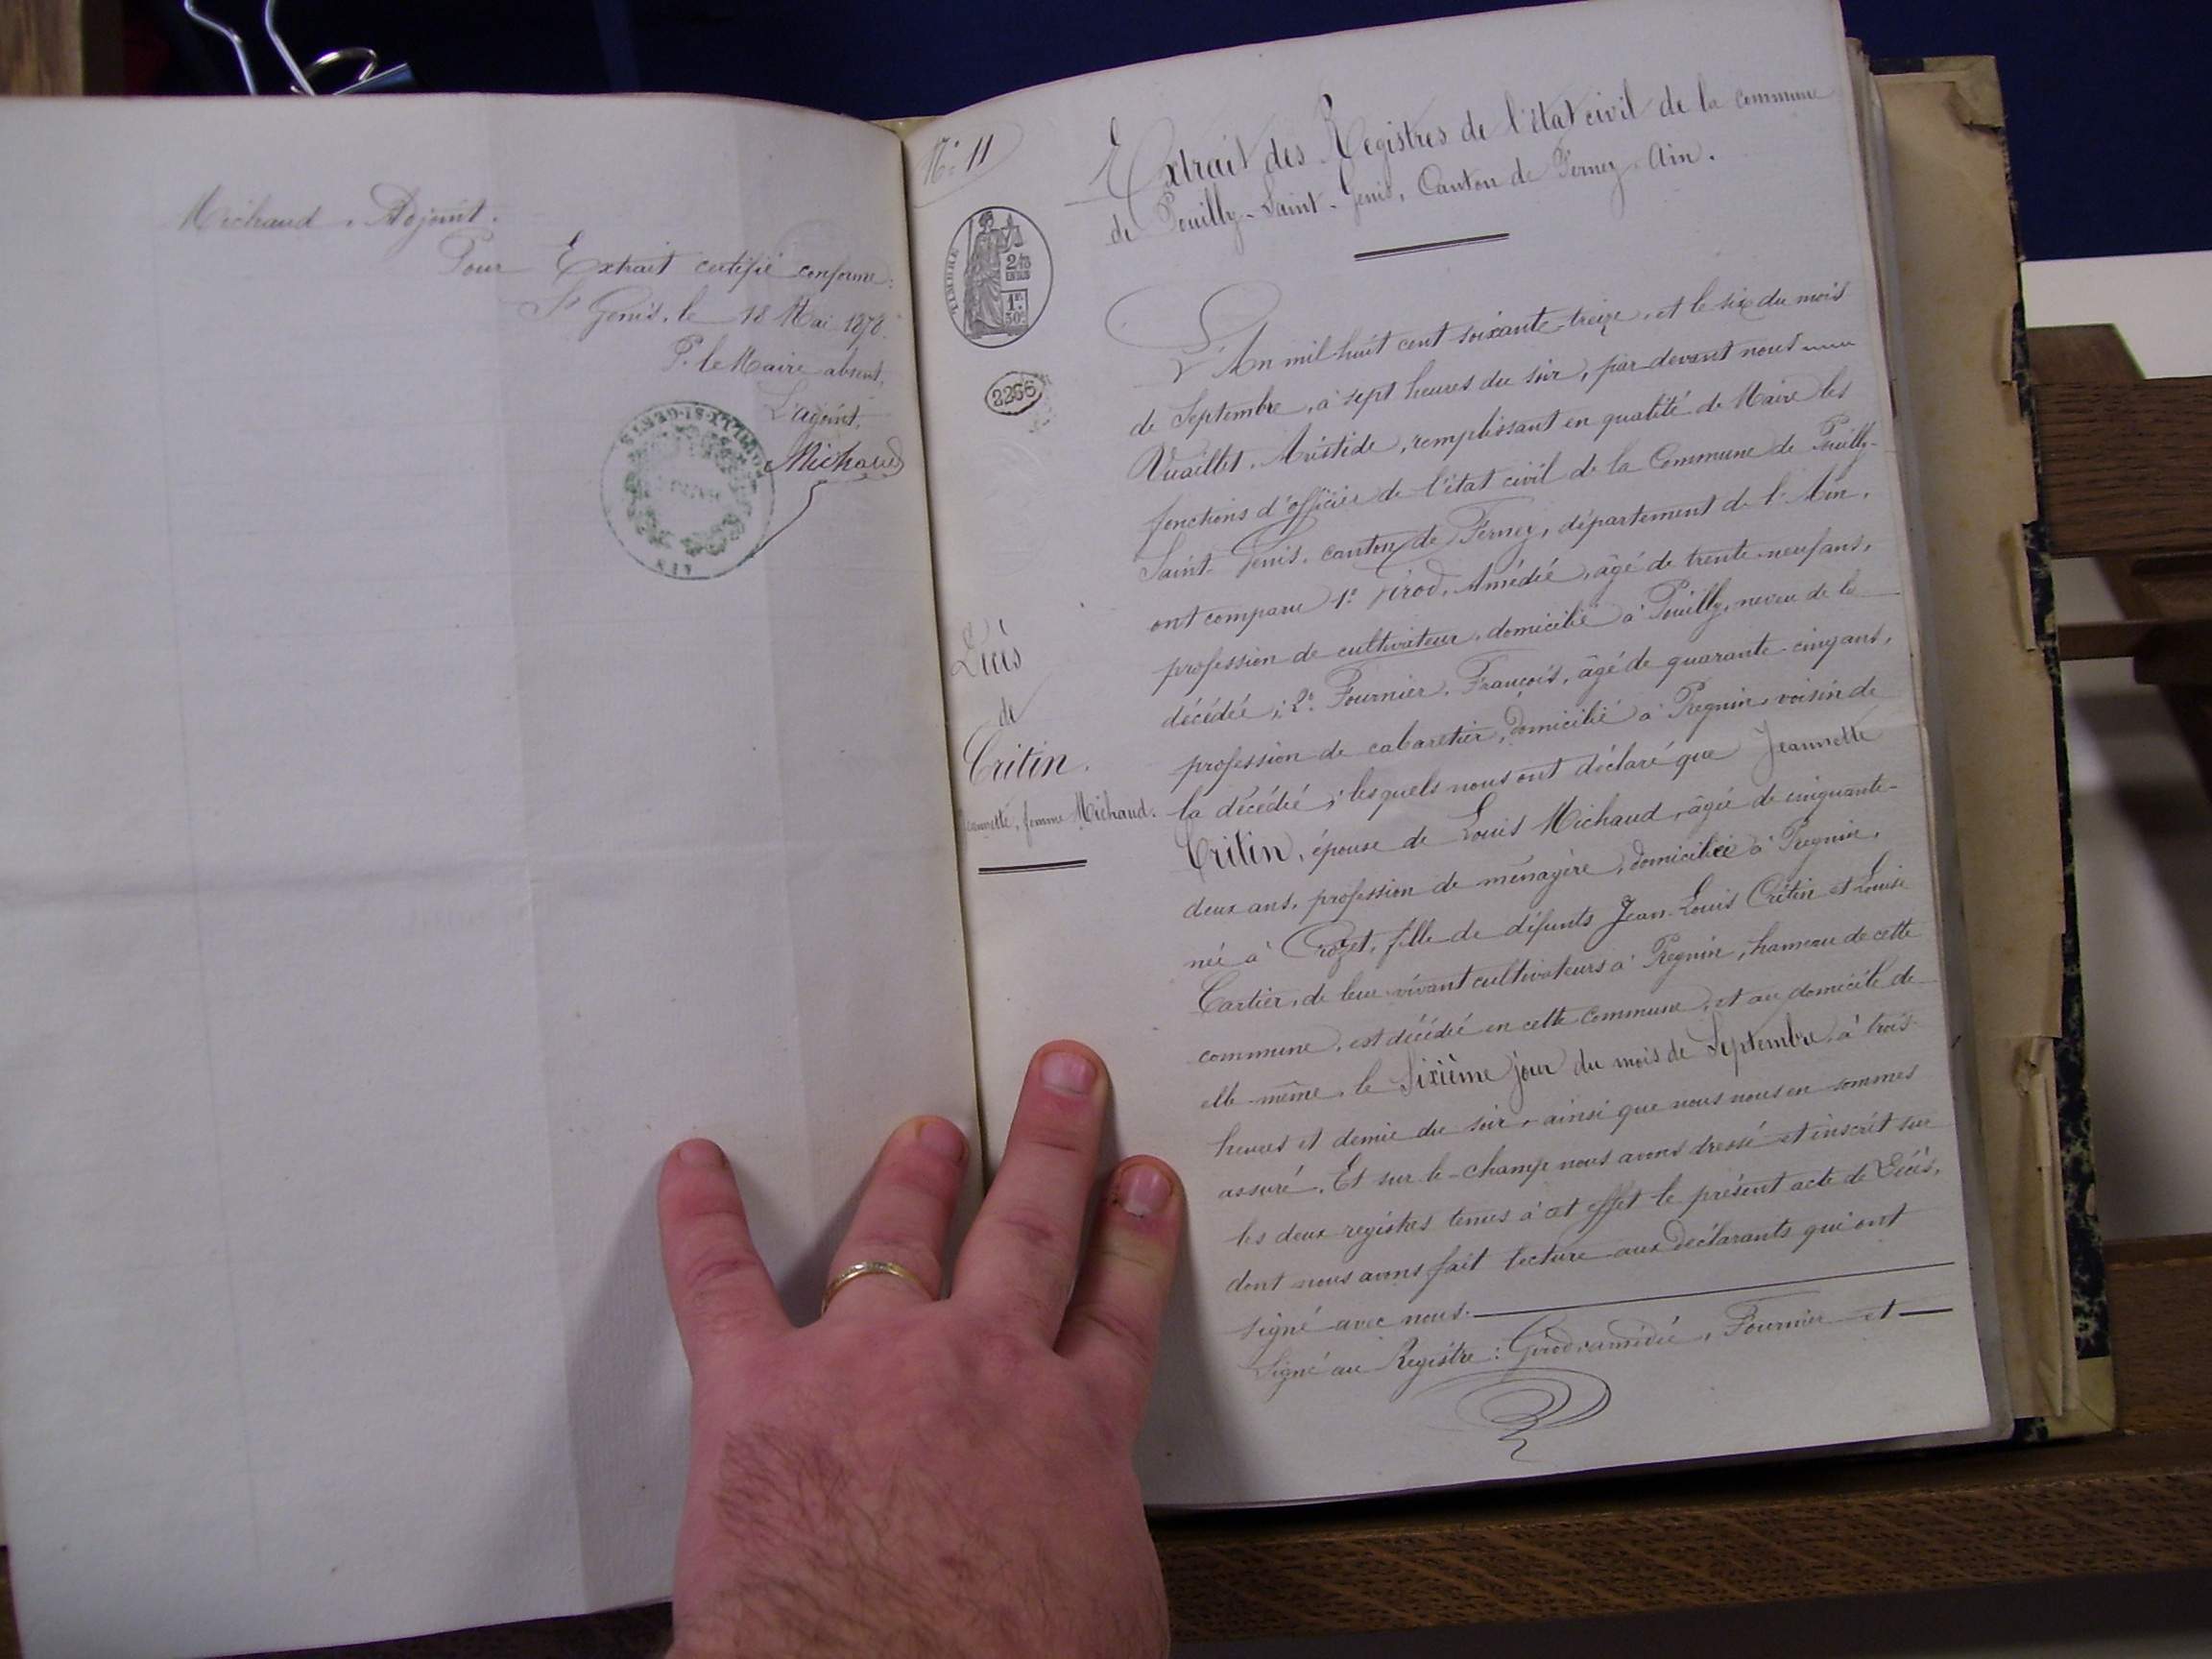 Michaud, Adjoint.
Pour Extrait certifié conforme:
St Genis, le 18 Mai 1878.
P. le Maire absent,
L'adjoint,
Michaud
POUILLY-ST-GENIS
AIN
No 11
Extrait des Registres de l'état civil de la commune
de Pouilly-Saint-Genis, Canton de Ferney, Ain.
TIMBRE
2/10
EN SUS
1F.
50C.
2266
L'An mil huit cent soixante-treize, et le six du mois
de Septembre, à sept heures du soir, par devant nous
Vuaillet, Aristide, remplissant en qualité de Maire les
fonctions d'officier de l'état civil de la Commune de Pouilly-
Saint-Genis, canton de Ferney, département de l'Ain,
ont comparu 1° Girod, Amédée, âgé de trente-neuf ans,
profession de cultivateur, domicilié à Pouilly, neveu de la
décédée; 2° Fournier, François, âgé de quarante-cinq ans,
profession de cabaretier, domicilié à Pregnin, voisin de
la décédée; lesquels nous ont déclaré que Jeannette
Critin, épouse de Louis Michaud, âgée de cinquante-
deux ans, profession de ménagère, domiciliée à Pregnin,
née à Crozet, fille de défunts Jean-Louis Critin et Louise
Cartier, de leur vivant cultivateurs à Pregnin, hameau de cette
commune, est décédée en cette commune, et au domicile de
elle-même, le Sixième jour du mois de Septembre, à trois
heures et demie du soir, ainsi que nous nous en sommes
assuré. Et sur-le-champ nous avons dressé et inscrit sur
les deux registres tenus à cet effet le présent acte de Décès,
dont nous avons fait lecture aux déclarants qui ont
signé avec nous.
Signé au Registre: Girod amédée, Fournier et
Décès
de
Critin.
Jeannette, femme Michaud.